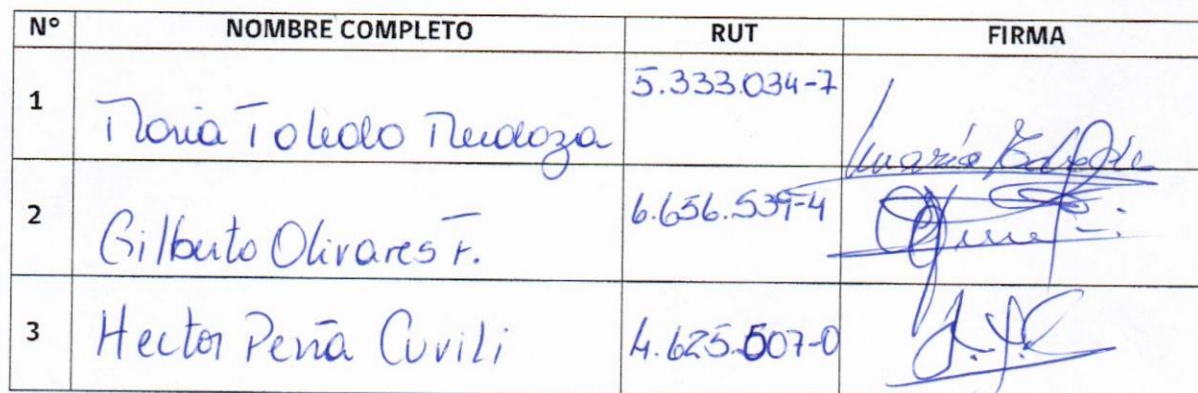 N° NOMBRE COMPLETO RUT FIRMA
1 Maria Toledo Mendoza 5.333.034-7
2 Gilberto Olivares F. 6.656.539-4
3 Hector Peña Curili 4.625.507-0